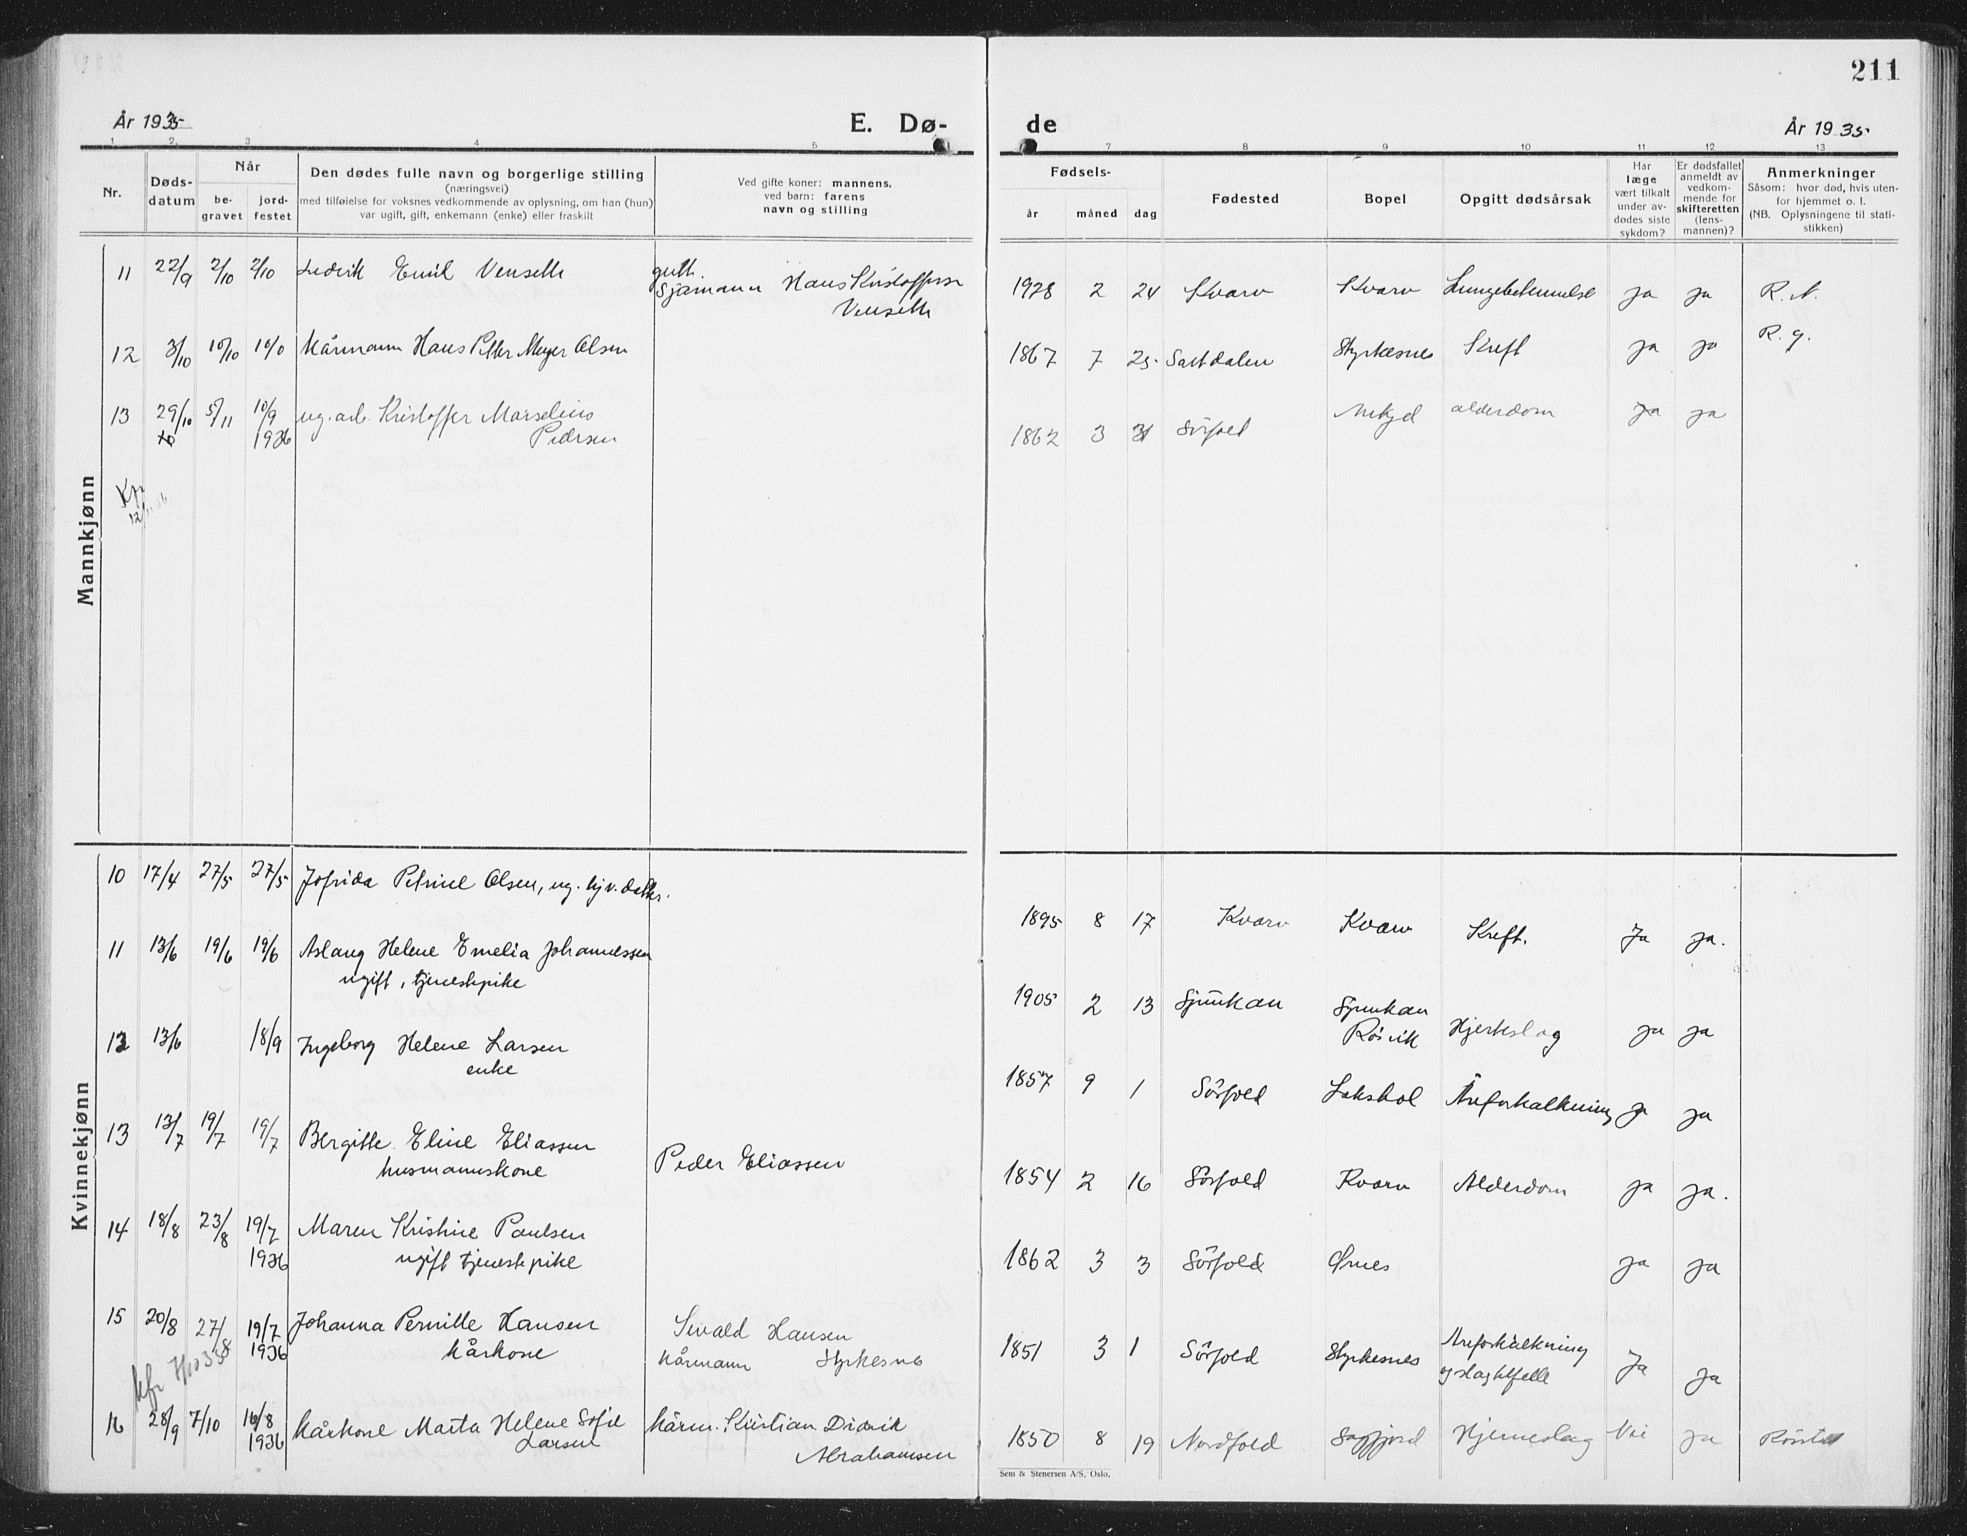 211
År 1935
E. Dø-
de
År 1935
1 2 3 4 5 7 8 9 10 11 12 13
Nr.
Døds-
datum
Når
be-
gravet
jord-
festet
Den dødes fulle navn og borgerlige stilling
(næringsvei)
med tilføielse for voksnes vedkommende av oplysning, om han (hun)
var ugift, gift, enkemann (enke) eller fraskilt
Ved gifte koner: mannens,
ved barn: farens
navn og stilling
Fødsels-
år måned dag
Fødested
Bopel
Opgitt dødsårsak
Har
læge
vært tilkalt
under av-
dødes siste
sykdom?
Er dødsfallet
anmeldt av
vedkom-
mende for
skifteretten
(lens-
mannen)?
Anmerkninger
Såsom: hvor død, hvis uten-
for hjemmet o. l.
(NB. Oplysningene til stati-
stikken)
Mannkjønn
11 22/9 2/10 2/10 Ludvik Emil Venseth gutt.
Sjømann Hans Kristoffersen
Venseth
1928 2 24 Kvarv Kvarv Lungebetennelse ja ja
12 3/10 10/10 10/10 Kårmann Hans Petter Meyer Olsen
1867 7 25 Saltdalen Styrkesnes Kreft ja ja
13 29/10 5/11 10/9 ug. arb. Kristoffer Marselius
1936 Pedersen
1862 3 31 Sörfold alderdom ja ja
Kvinnekjønn
10 17/4 27/5 27/5 Jofrida Petrine Olsen, ug. hjv. datter.
1895 8 17 Kvarv Kvarv Kreft. Ja ja.
11 13/6 19/6 19/6 Aslaug Helene Emelia Johannessen
ugift, tjenestepike
1905 2 13 Sjunkan Sjunkan
Rösvik Hjerteslag ja ja
12 13/6 18/9 Ingeborg Helene Larsen
enke
1857 9 1 Sörfold Lakshol Åreforkalkning ja ja
13 13/7 19/7 19/7 Bergitte Eline Eliassen
husmannskone Peder Eliassen
1854 2 16 Sörfold Kvarv Alderdom ja ja.
14 18/8 23/8 19/7 Maren Kristine Paulsen
1936 ugift tjenestepike
1862 3 3 Sörfold Ørnes ja ja
15 20/8 27/8 19/7 Johanna Pernille Hansen Sivald Hansen
1936 kårkone Kårmann Styrkesnes
1851 3 1 Sörfold Styrkesnes Åreforkalkning
og slagtilfelle Ja ja
16 28/9 7/10 16/8 Kårkone Marta Helene Sofie Kårm. Kristian Didrik
1936 Larsen Abrahamsen
1850 8 19 Nordfold Sagfjord Hjerneslag Nei ja
Sem & Stenersen A/S, Oslo.